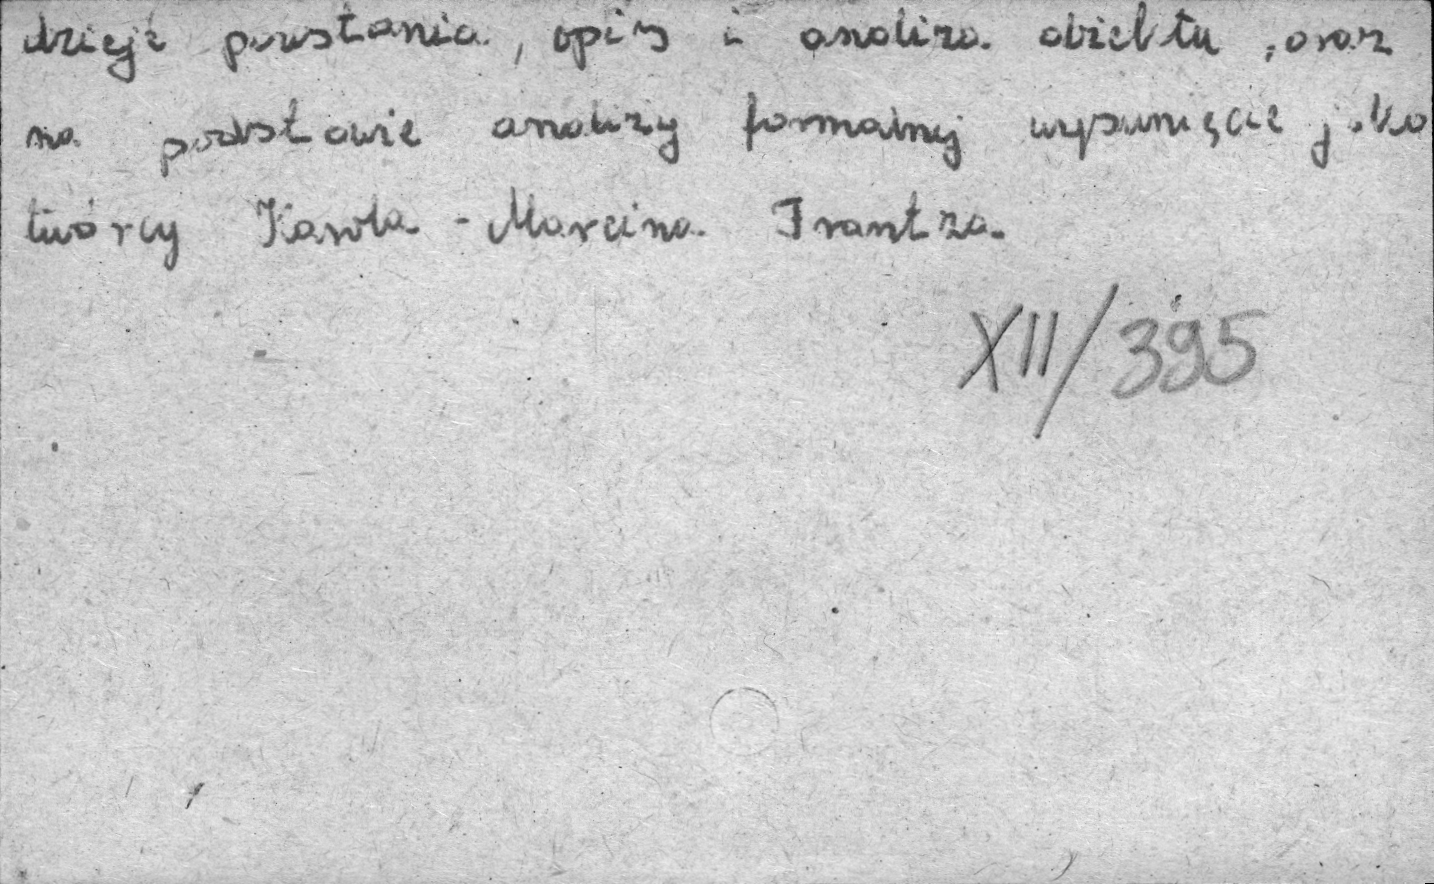 dzieje powstania, opis i analiza obiektu, oraz
na podstawie analizy formalnej wysunięcie jako
twórcy Karola - Marcina Frantza.
XII/395